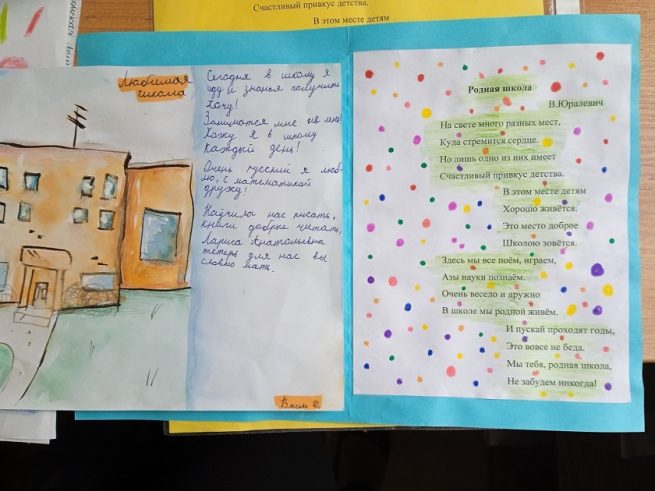 Счастливый привкус детства.
В этом месте детям
Любимая
школа
Сегодня в школу я
иду и знанья получить
хочу!
Заниматся мне не лень!
Хожу я в школу
каждый день!
Очень русский я люб-
лю, с математикой
дружу!
Научила нас писать,
книги добрые читать,
Лариса Анатольевна
теперь для нас вы
словно мать.
Родная школа
В.Юралевич
На свете много разных мест,
Куда стремится сердце.
Но лишь одно из них имеет
Счастливый привкус детства.
В этом месте детям
Хорошо живётся.
Это место доброе
Школою зовётся.
Здесь мы все поём, играем,
Азы науки познаём.
Очень весело и дружно
В школе мы родной живём.
И пускай проходят годы,
Это вовсе не беда.
Мы тебя, родная школа,
Не забудем никогда!